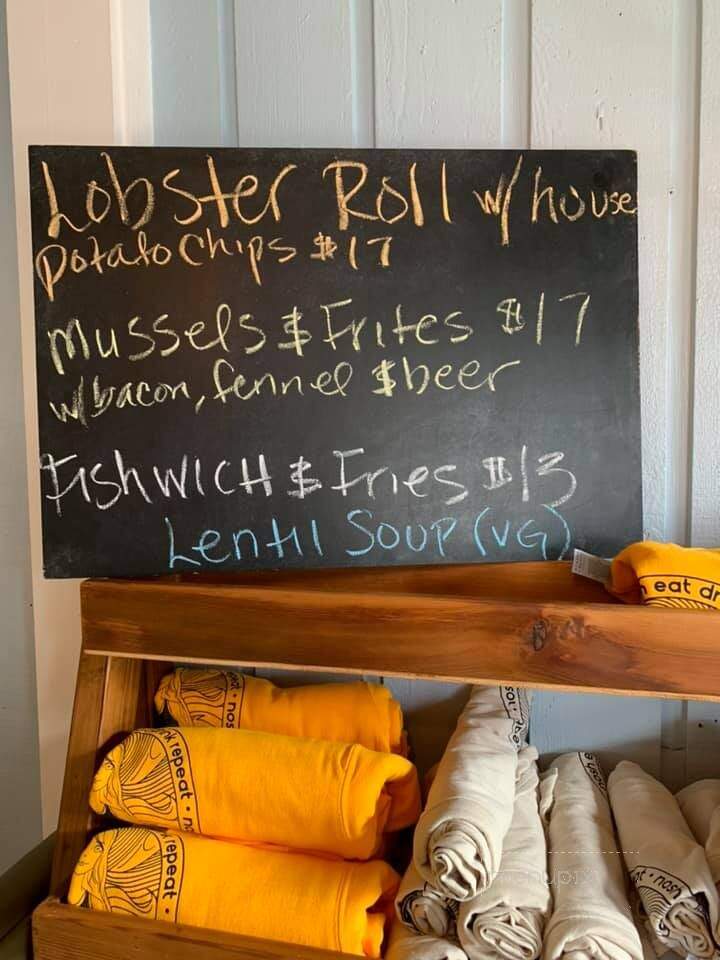 Lobster Roll w/ house
potato chips $17
Mussels & Frites $17
w/bacon, fennel & beer
Fishwich & Fries $13
Lentil Soup (VG)
eat dr
nos
nk repeat • n
repeat •
menupix